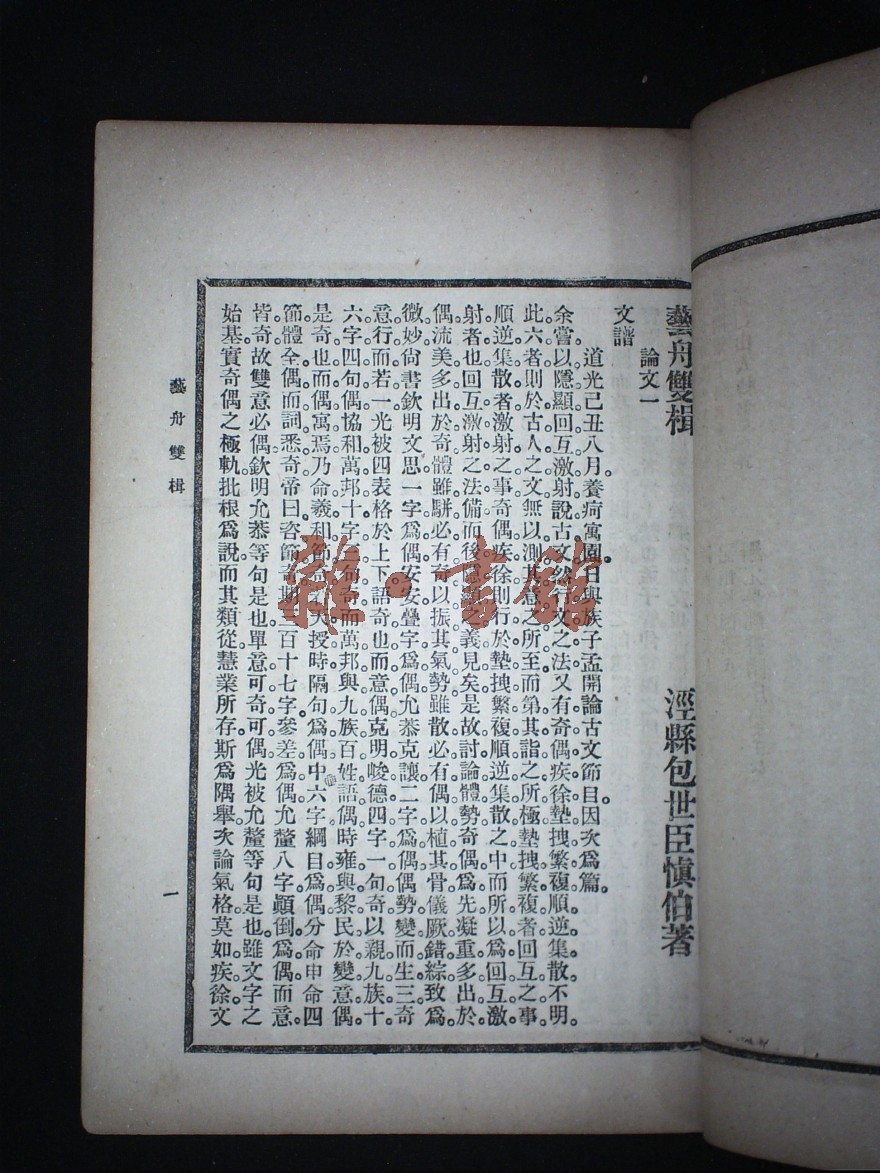 藝舟雙楫 涇縣包世臣慎伯著
論文一
文譜
道光己丑八月養疴寓園日與族子孟開論古文節目因次為篇。
余嘗以隱顯回互激射說古文然行文之法又有奇偶疾徐墊拽繁複順逆集散不明。
此六者則於古人之文無以測其意之所至而第其詣之所極墊拽繁複者回互之事。
順逆集散者激射之事奇偶疾徐則行於墊拽繁複順逆集散之中而所以為回互激
射者也回互激射之法備而後隱顯之義見矣是故討論體勢奇偶為先凝重多出於
偶流美多出於奇體雖駢必有奇以振其氣勢雖散必有偶以植其骨儀厥錯綜致為
微妙尚書欽明文思一字為偶安安疊字為偶允恭克讓二字為偶偶勢變而生三奇
意行而若一光被四表格於上下語奇也而意偶克明峻德四字一句奇以親九族十
六字四句偶協和萬邦十字一句奇而萬邦與九族百姓語偶時雍與黎民於變意偶
是奇也而偶寓焉乃命羲和節奇天授時隔句為偶中六字綱目為偶分命申命四
節體全偶而詞悉奇帝曰咨節奇期三百十七字參差為偶允釐八字顛倒為偶而意
皆奇故雙意必偶欽明允恭等句是也單意可奇可偶光被允釐等句是也雖文字之
始基實奇偶之極軌批根為說而其類從慧業所存斯為隅舉次論氣格莫如疾徐文
藝舟雙楫
一
雜·書館